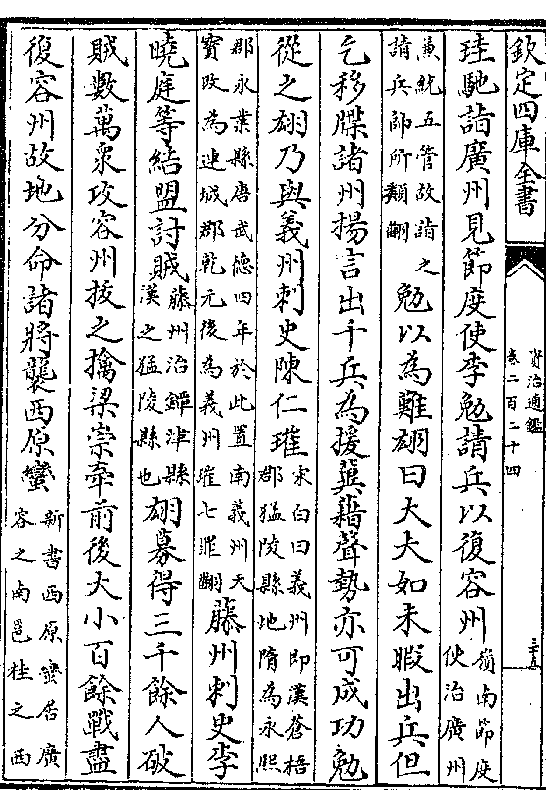 欽定四庫全書
資治通鑑
卷二百二十四
三五
珪馳詣廣州見節度使李勉請兵以復容州嶺南節度使治廣州
兼統五管故詣之請兵帥所類翻勉以為難翃曰大夫如未暇出兵但
乞移牒諸州揚言出千兵為援冀藉聲勢亦可成功勉
從之翃乃與義州刺史陳仁璀宋白曰義州即漢蒼梧郡猛陵縣地隋為永熙
郡永業縣唐武徳四年於此置南義州天寶改為連城郡乾元後為義州璀七罪翻藤州刺史李
曉庭等結盟討賊藤州治鐔津縣漢之猛陵縣也翃募得三千餘人破
賊數萬衆攻容州拔之擒梁崇牽前後大小百餘戰盡
復容州故地分命諸將襲西原蠻新書西原蠻居廣容之南邕桂之西